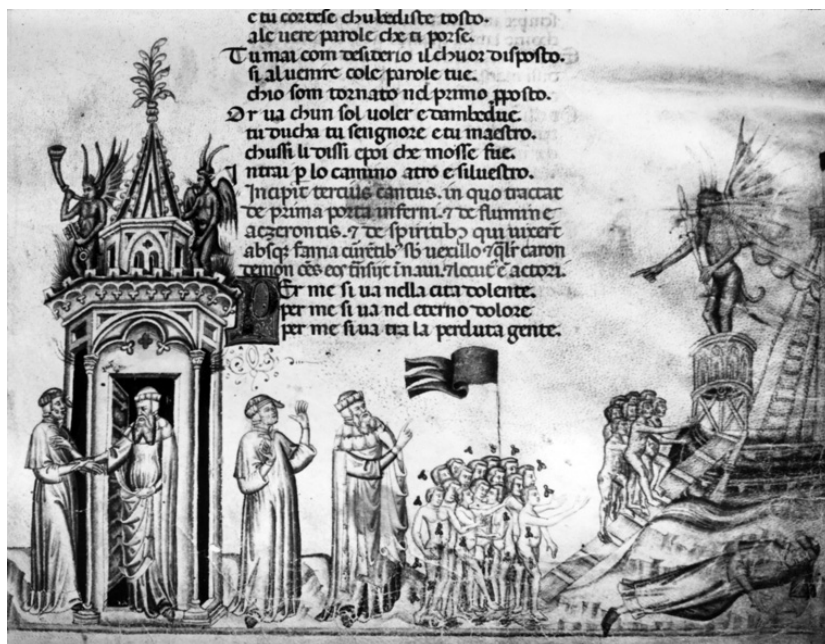 e tu cortese chubediste tosto.
ale uere parole che ti porse.
Tu mai com desiderio il chuor disposto.
si al uenire cole parole tue.
chio som tornato nel primo pposto.
Or ua chun sol uoler e dambedue.
tu ducha tu sengnore e tu maestro.
chussi li dissi epoi che mosse fue.
Intrai p lo camino atro e siluestro.
Incipit tercius cantus. in quo tractat
de prima porta inferni. & de flumine
aczerontis. & de spiritibz qui uixert
absqz fama uexillo caron
demon in
Per me si ua nella cita dolente.
per me si ua nel eterno dolore
per me si ua tra la perduta gente.